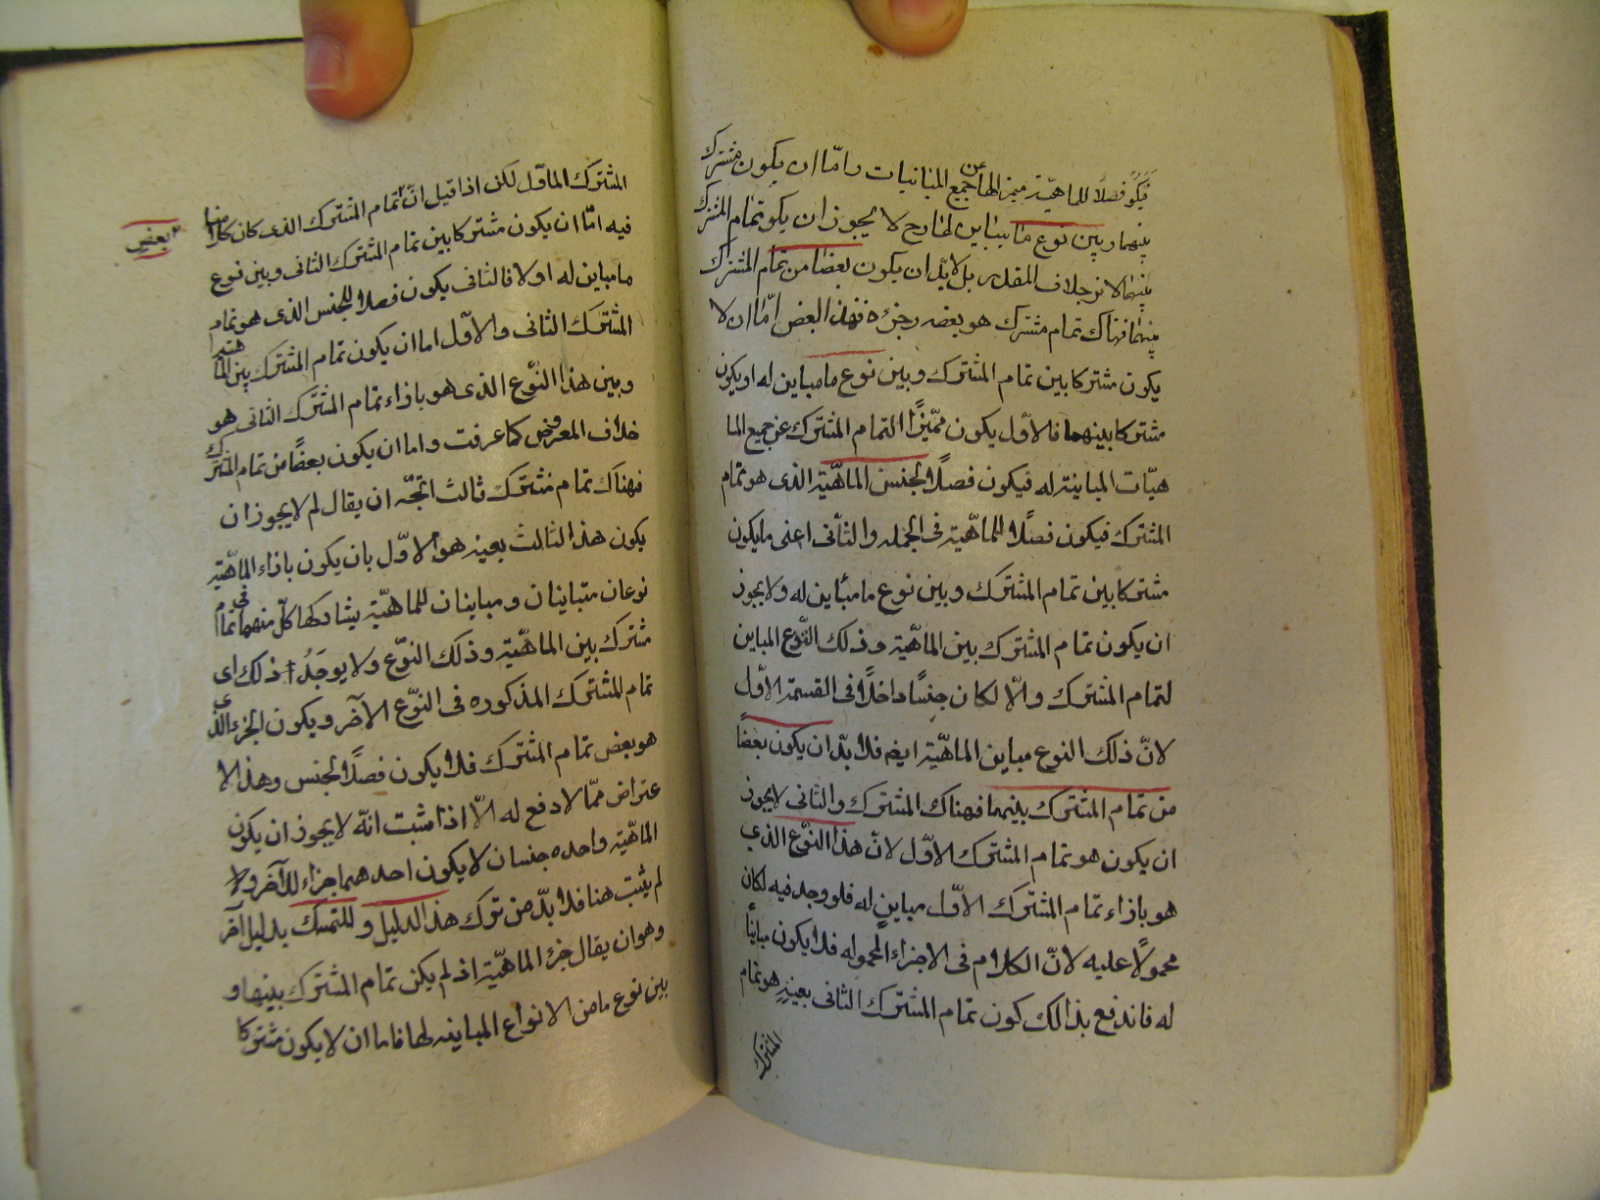 فيكون فصلا للماهيّة مميز الها عن جميع المباينات واما ان يكون مشترك
بينهما وبين نوع ما يباين لها رح لا يجوز ان يكو تمام المشترك
بينهما لانه خلاف المقدر بل لا بدّ ان يكون بعضا من تمام المشترك
بينهما فهناك تمام مشترك هو بعضه وجزءه فهذا البعض امّا ان لا
يكون مشتركا بين تمام المشترك وبين نوع ما مباين له او يكون
مشتركا بينهما فالاوّل يكون مميّزًا التمام المشترك عن جميع الما
هيّات المباينة له فيكون فصلًا لجنس الماهيّة الذى هو تمام
المشترك فيكون فصلًا للماهيّة فى الجمله والثانى اعنى ما يكون
مشتركا بين تمام المشترك وبين نوع ما مباين له ولا يجوز
ان يكون تمام المشترك بين الماهيّة وذلك النّوع المباين
لتمام المشترك والّا لكان جنسًا داخلًا فى القسمة الاوّل
لانّ ذلك النوع مباين الماهيّة ايضا فلا بدّ ان يكون بعضًا
من تمام المشترك بينهما فهناك المشترك والثانى لا يجوز
ان يكون هو تمام المشترك الاوّل لانّ هذا النّوع الذي
هو بازاء تمام المشترك الاوّل مباين له فلو وجد فيه لكان
محمولًا عليه لانّ الكلام فى الاجزاء المحموله فلا يكون مباينًا
له فاندفع بذالك كون تمام المشترك الثانى بعينه هو تمام
المشترك
المشترك الماوّل لكن اذا قيل انّ تمام المشترك الذى كان كلامنا
بعض
فيه امّا ان يكون مشتركا بين تمام المشترك الثانى وبين نوع
ما مباين له او لا فالثانى يكون فصلا للجنس الذى هو تمام
المشترك الثانى والاوّل اما ان يكون تمام المشترك بين الماهيته
وبين هذا النّوع الذى هو بازاء تمام المشترك الثانى هو
خلاف المعروض كما عرفت واما ان يكون بعضًا من تمام المشترك
فهناك تمام مشترك ثالث اتجّه ان يقال لم لا يجوز ان
يكون هذا الثالث بعينه هو الاوّل بان يكون بازاء الماهيّة
نوعان متباينان ومباينان للماهيّة يشاركها كلّ منهما فى تمام
مشترك بين الماهيّة وذلك النوّع ولا يوجدُ ذلك اى
تمام المشترك المذكوره فى النوّع الآخر ويكون الجزء الذى
هو بعض تمام المشترك فلا يكون فصلًا لجنس وهذا الا
عتراض ممّا لا دفع له الّا اذا مثبت انّه لا يجوز ان يكون
الماهيّة واحده جنسان لا يكون احدهما جزاء للآخر ولا
لم يثبت هنا فلا بدّ من ترك هذ الدليل وللتمسك بدليل آخر
وهو ان يقال جزء الماهيّة اذ لم يكن تمام المشترك بينها و
بين نوع ما من الانواع المباينه لها فاما ان لا يكون مشتركا